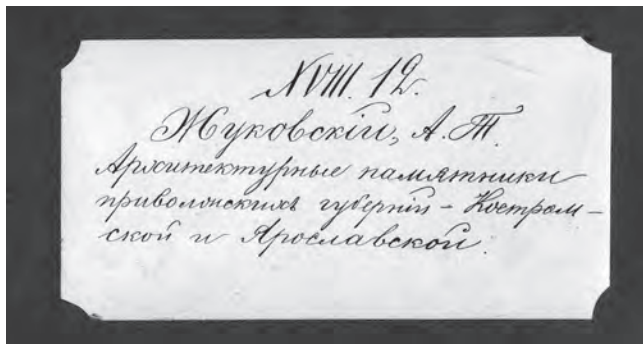 XVIII. 12.
Жуковскій, А. Т.
Архитектурные памятники
приволжскихъ губерній - Костром-
ской и Ярославской.